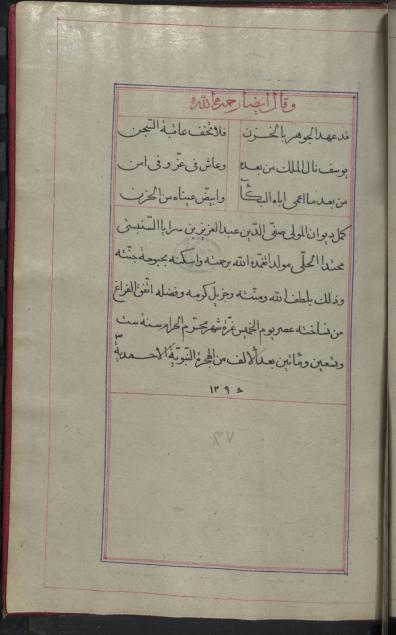 وقال ايضا رحمه الله
قد عهد الجوهر بالخزن فلا تخف عاقبة السجن
يوسف نال الملك من بعده وعاش في عز وفي امن
من بعد ما اعمى اباه البكآ وابيض عيناه من الحزن
كمل ديوان المولى صفي الدين عبد العزيز بن سرايا السنبسي
محتدا الحلي مولدا تغمده الله برحمته واسكنه بحبوحة جنته
وذلك بلطف الله ومنته وجزيل كرمه وفضله اتفق الفراغ
من نساخته عصر يوم الخميس غرة شهر محرم الحرام سنة ست
وتسعين ومائتين بعد الالف من الهجرة النبوية الاحمدية
١٢٩٦